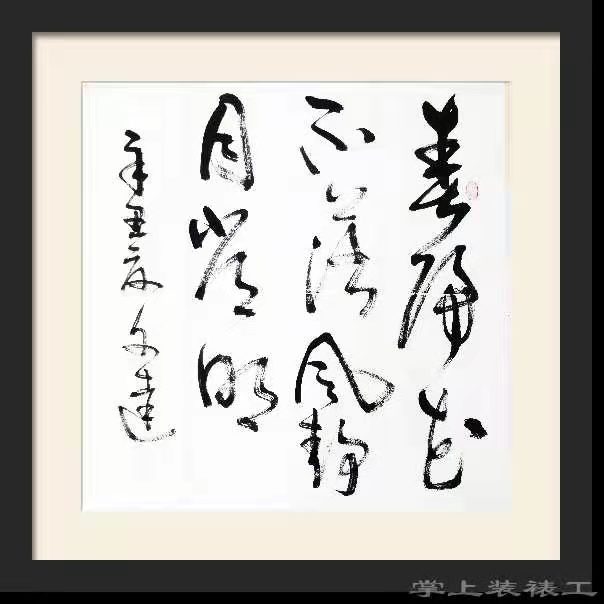 春歸花
不落风静
月常明
辛丑夏 文達
掌上装裱工